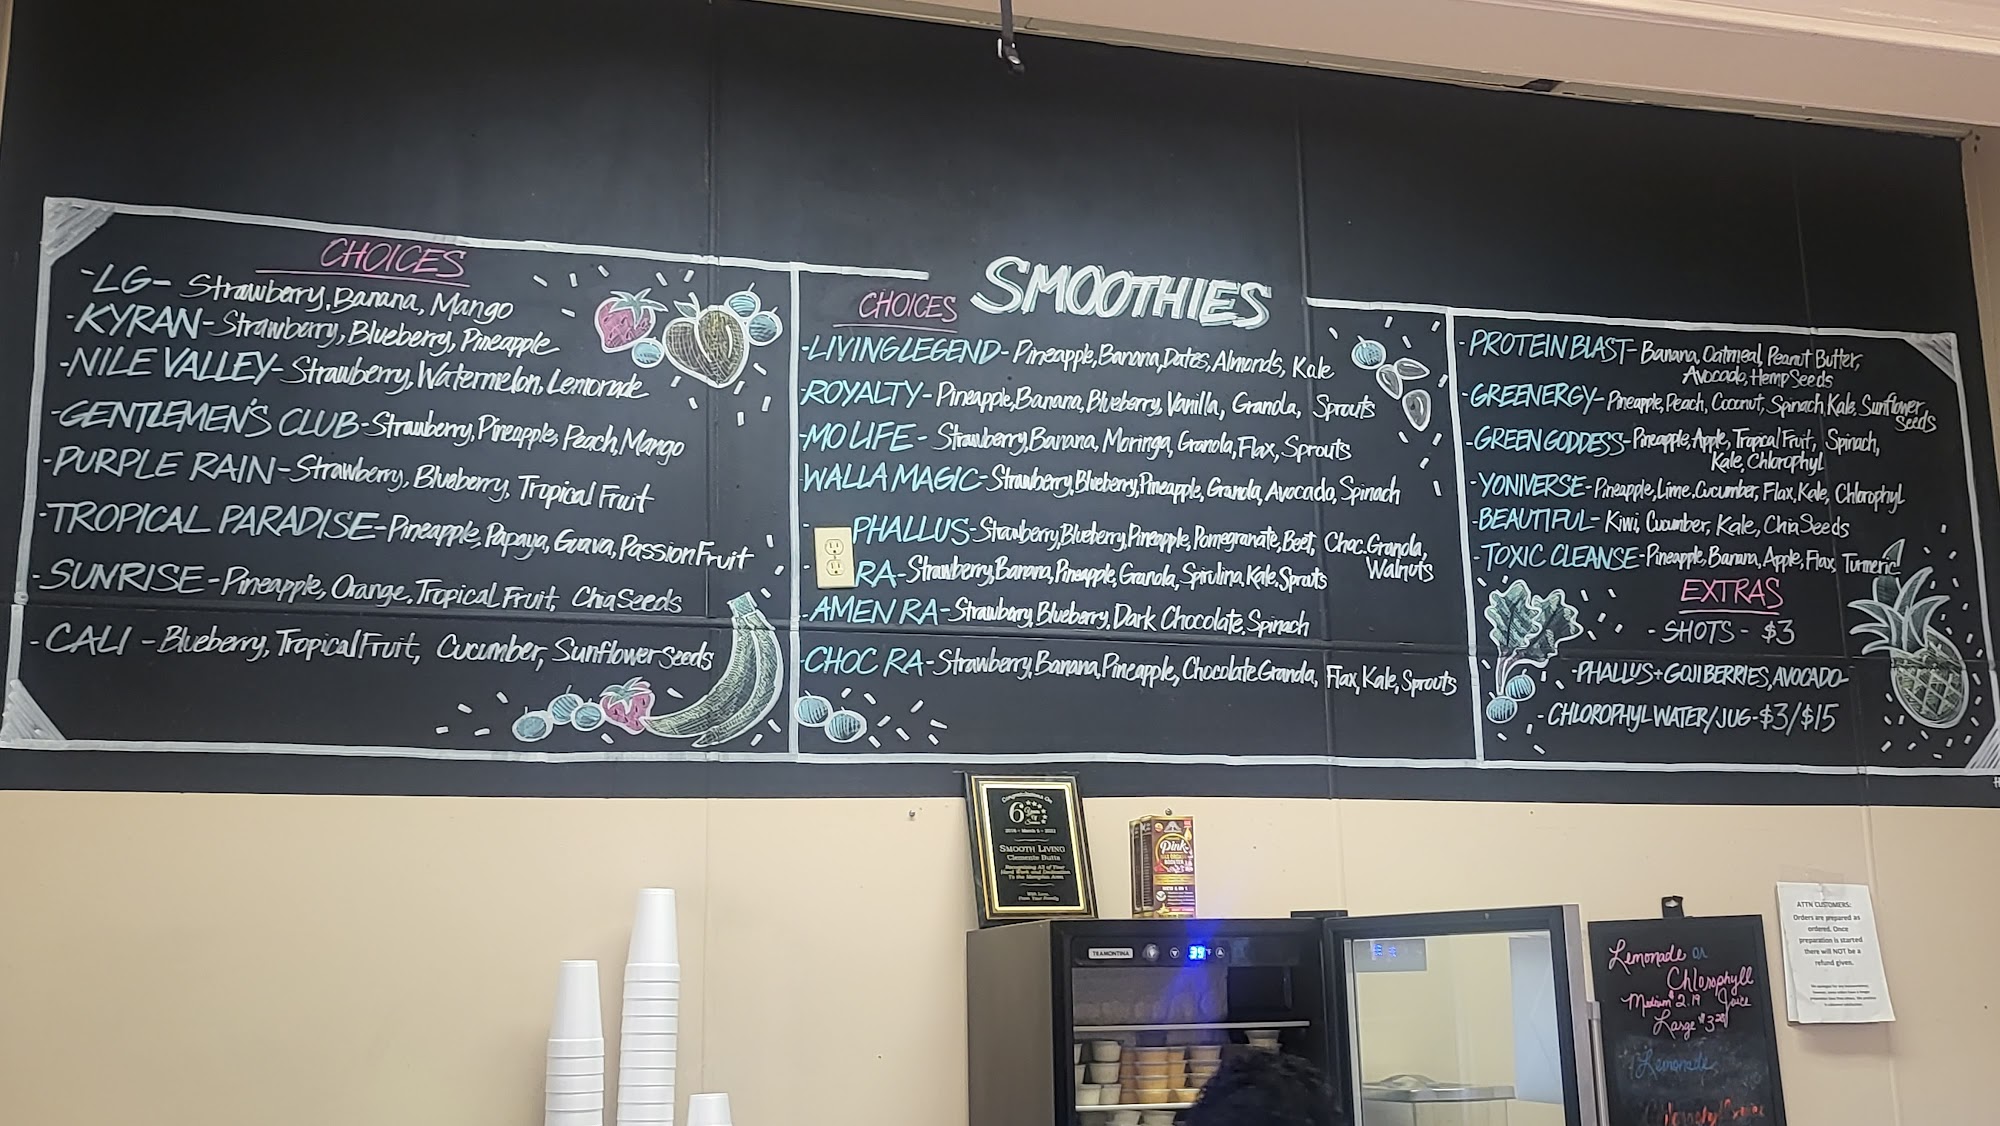 CHOICES
-LG- Strawberry, Banana, Mango
-KYRAN- Strawberry, Blueberry, Pineapple
-NILE VALLEY- Strawberry, Watermelon, Lemonade
-GENTLEMEN'S CLUB- Strawberry, Pineapple, Peach, Mango
-PURPLE RAIN- Strawberry, Blueberry, Tropical Fruit
-TROPICAL PARADISE- Pineapple, Papaya, Guava, Passion Fruit
-SUNRISE- Pineapple, Orange, Tropical Fruit, Chia Seeds
-CALI- Blueberry, Tropical Fruit, Cucumber, Sunflower Seeds
SMOOTHIES
CHOICES
-LIVING LEGEND- Pineapple, Banana, Dates, Almonds, Kale
-ROYALTY- Pineapple, Banana, Blueberry, Vanilla, Granola, Sprouts
-MO LIFE- Strawberry, Banana, Moringa, Granola, Flax, Sprouts
WALLA MAGIC- Strawberry, Blueberry, Pineapple, Granola, Avocado, Spinach
-PHALLUS- Strawberry, Blueberry, Pineapple, Pomegranate, Beet, Choc. Granola,
Walnuts
-RA- Strawberry, Banana, Pineapple, Granola, Spirulina, Kale, Sprouts
-AMEN RA- Strawberry, Blueberry, Dark Chocolate, Spinach
-CHOC RA- Strawberry, Banana, Pineapple, Chocolate Granola, Flax, Kale, Sprouts
-PROTEIN BLAST- Banana, Oatmeal, Peanut Butter,
Avocado, Hemp Seeds
-GREENERGY- Pineapple, Peach, Coconut, Spinach, Kale, Sunflower
Seeds
-GREEN GODDESS- Pineapple, Apple, Tropical Fruit, Spinach,
Kale, Chlorophyl
-YONIVERSE- Pineapple, Lime, Cucumber, Flax, Kale, Chlorophyl
-BEAUTIFUL- Kiwi, Cucumber, Kale, Chia Seeds
-TOXIC CLEANSE- Pineapple, Banana, Apple, Flax, Turmeric
EXTRAS
- SHOTS - $3
-PHALLUS + GOJI BERRIES, AVOCADO-
- CHLOROPHYL WATER/JUG- $3/$15
Congratulations On
6 Years Of Service
SMOOTH LIVING
Clemente Butta
Recognizing All of Your
Hard Work and Dedication
To the Memphis Area
With Love,
From Your Family
Pink
TRAMONTINA
ATTN CUSTOMERS:
Orders are prepared as
ordered. Once
preparation is started
there will NOT be a
refund given.
Lemonade or
Chlorophyll
Medium $2.19 Juice
Large $3
Lemonade